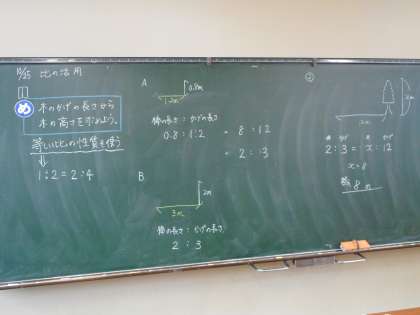 11/25 比の活用
め 木のかげの長さから
木の高さを求めよう。
等しい比の性質を使う
1:2=2:4
A
0.8m
1.2m
棒の長さ:かげの長さ
0.8:1.2
= 8:12
= 2:3
B
2m
3m
棒の長さ:かげの長さ
2:3
②
木 かげ 木 かげ
2:3=x:12
x=8
8m